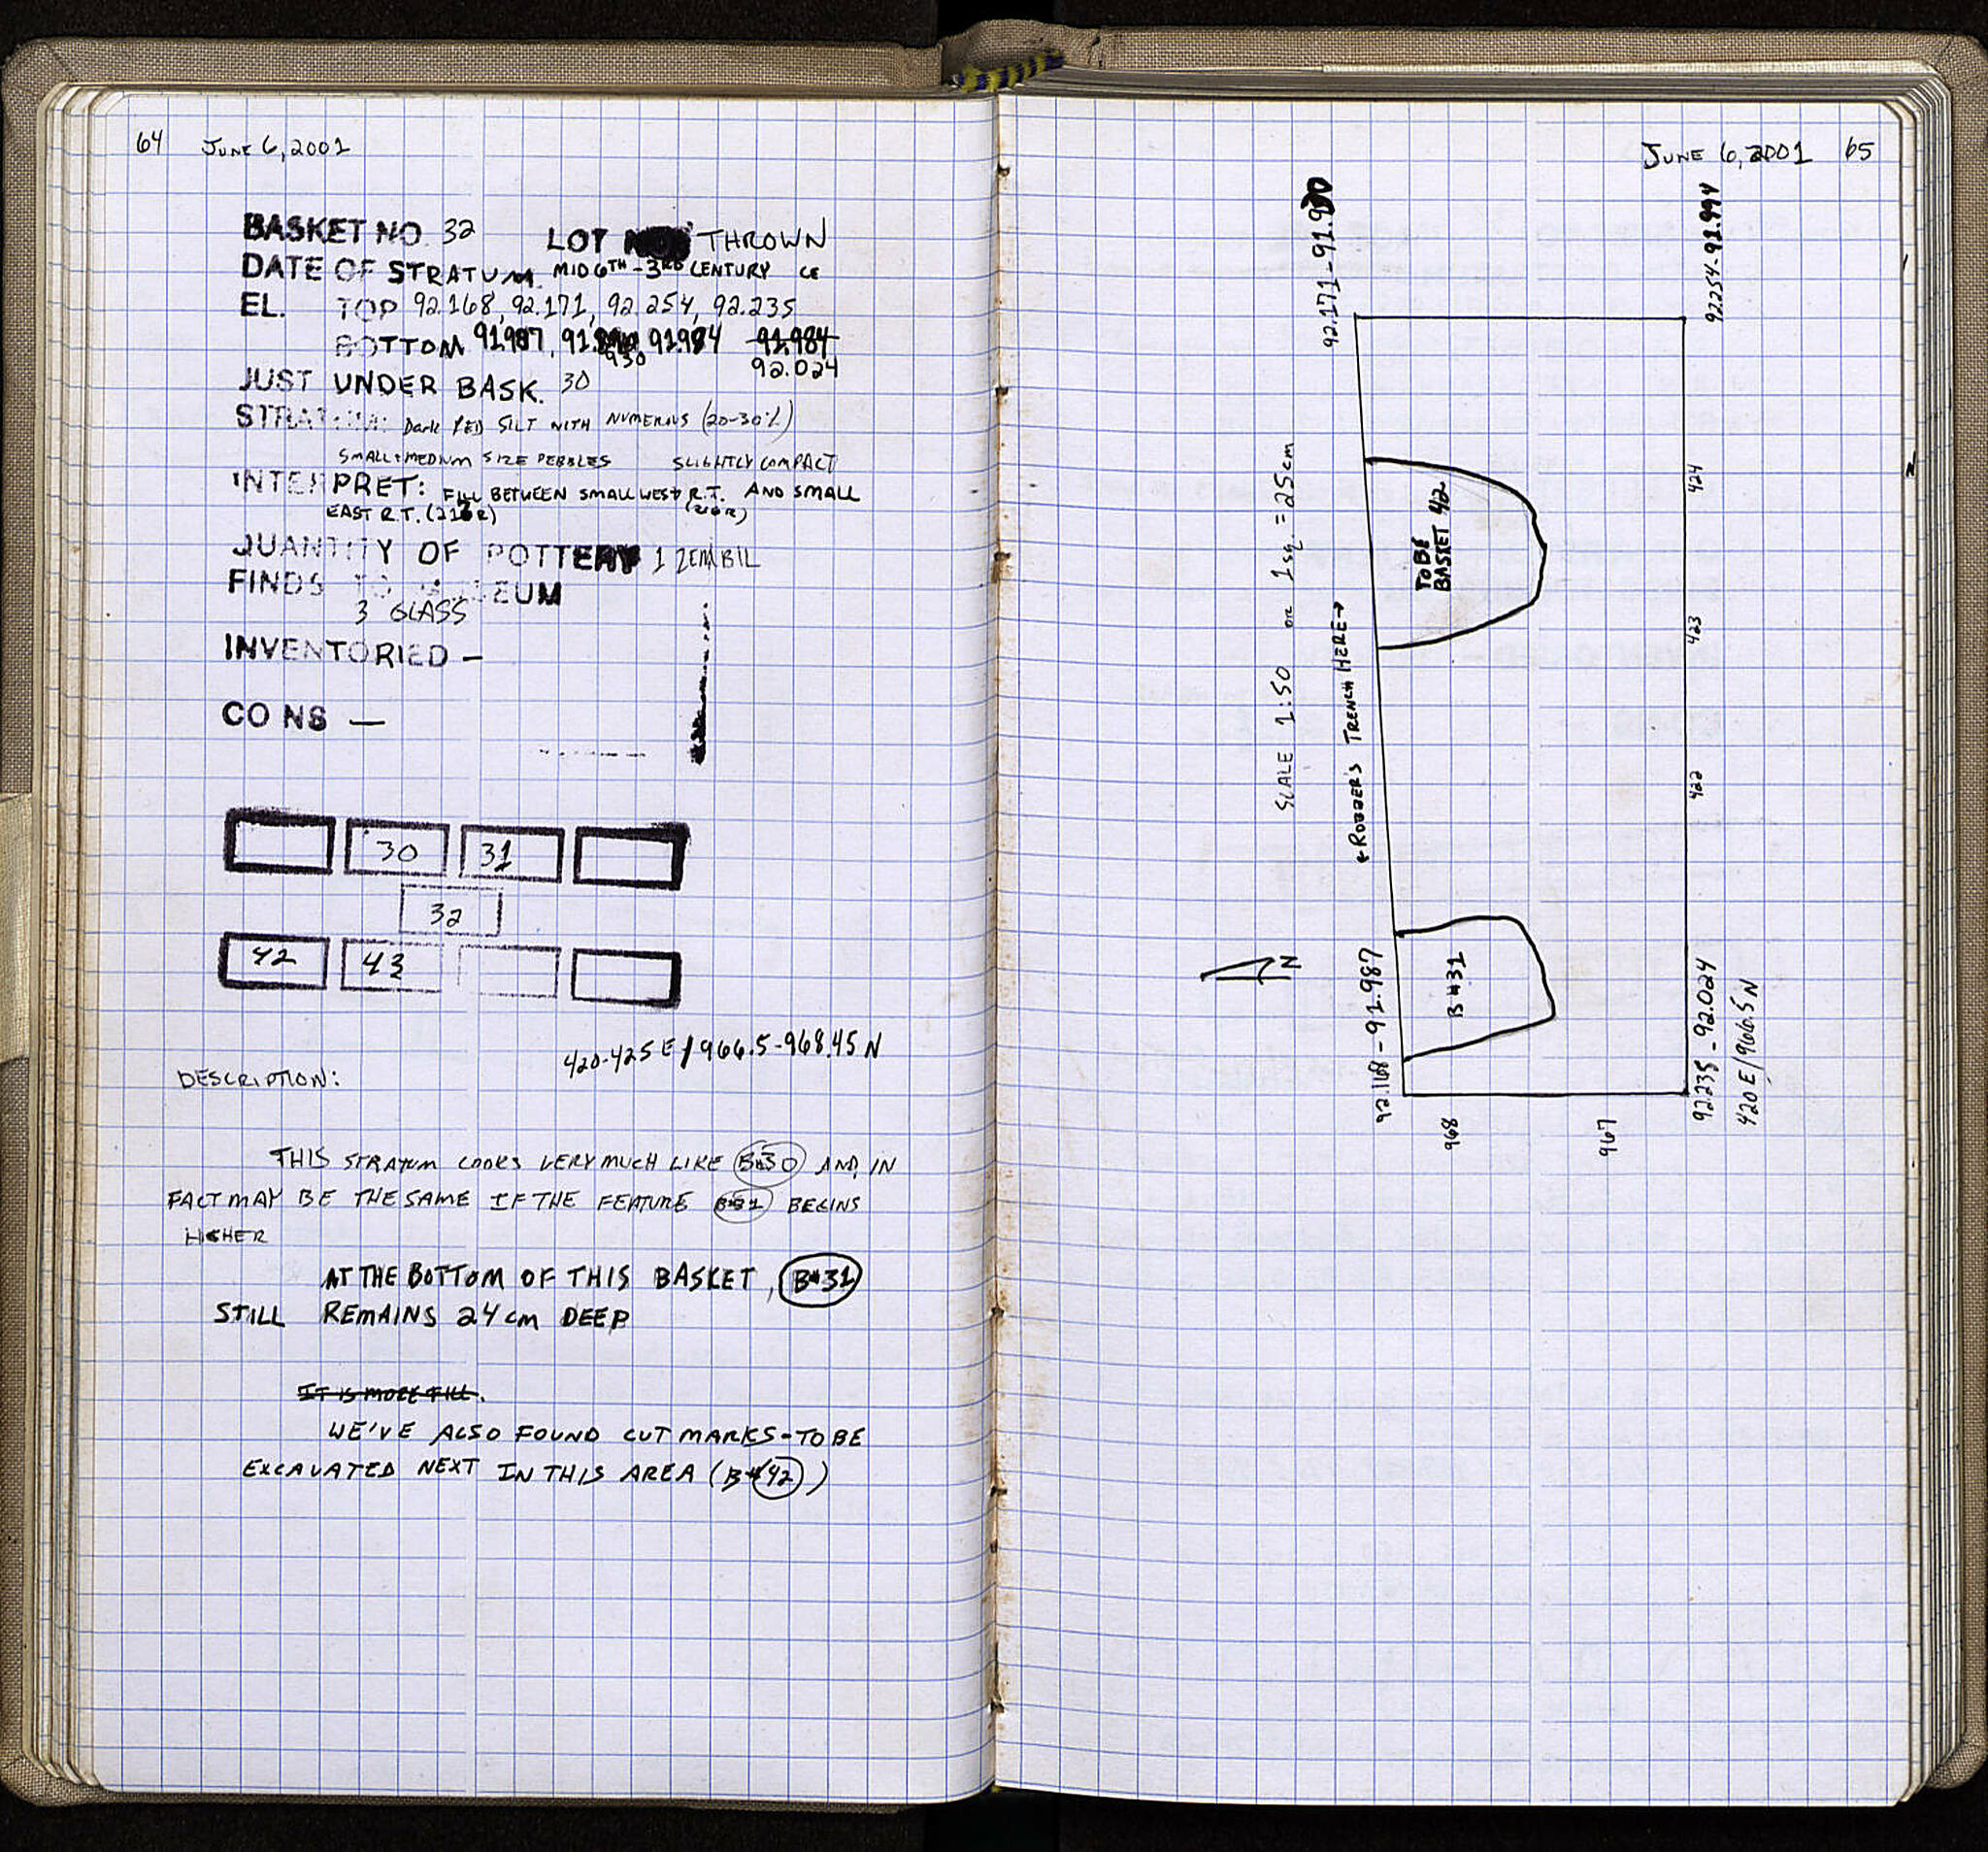 64 JUNE 6, 2001
BASKET NO 32 LOT THROWN
DATE OF STRATUM MID 6TH - 3RD CENTURY CE
EL. TOP 92.168, 92.171, 92.254, 92.235
BOTTOM 91.987, 91.984 91.984
930 92.024
JUST UNDER BASK. 30
STRATUM: Dark RED SILT WITH NUMEROUS (20-30%)
SMALL + MEDIUM SIZE PEBBLES SLIGHTLY COMPACT
INTERPRET: FILL BETWEEN SMALL WEST R.T. AND SMALL
EAST R.T.
QUANTITY OF POTTERY 1 ZEMBIL
FINDS TO MUSEUM
3 GLASS
INVENTORIED -
CONS —
30 31
32
42 43
420-425 E / 966.5-968.45 N
DESCRIPTION:
THIS STRATUM LOOKS VERY MUCH LIKE B#30 AND, IN
FACT MAY BE THE SAME IF THE FEATURE B#31 BEGINS
HIGHER
AT THE BOTTOM OF THIS BASKET, B#31
STILL REMAINS 24 cm DEEP
IT IS MORE FILL.
WE'VE ALSO FOUND CUT MARKS - TO BE
EXCAVATED NEXT IN THIS AREA (B#42)
JUNE 6, 2001 65
92.254-91.994
SCALE 1:50 or 1sq. = 25cm
←ROBBER'S TRENCH HERE→
TO BE
BASKET 42
424
423
422
N
92.168 - 91.987
B#31
968
967
92.235 - 92.024
420 E / 966.5 N